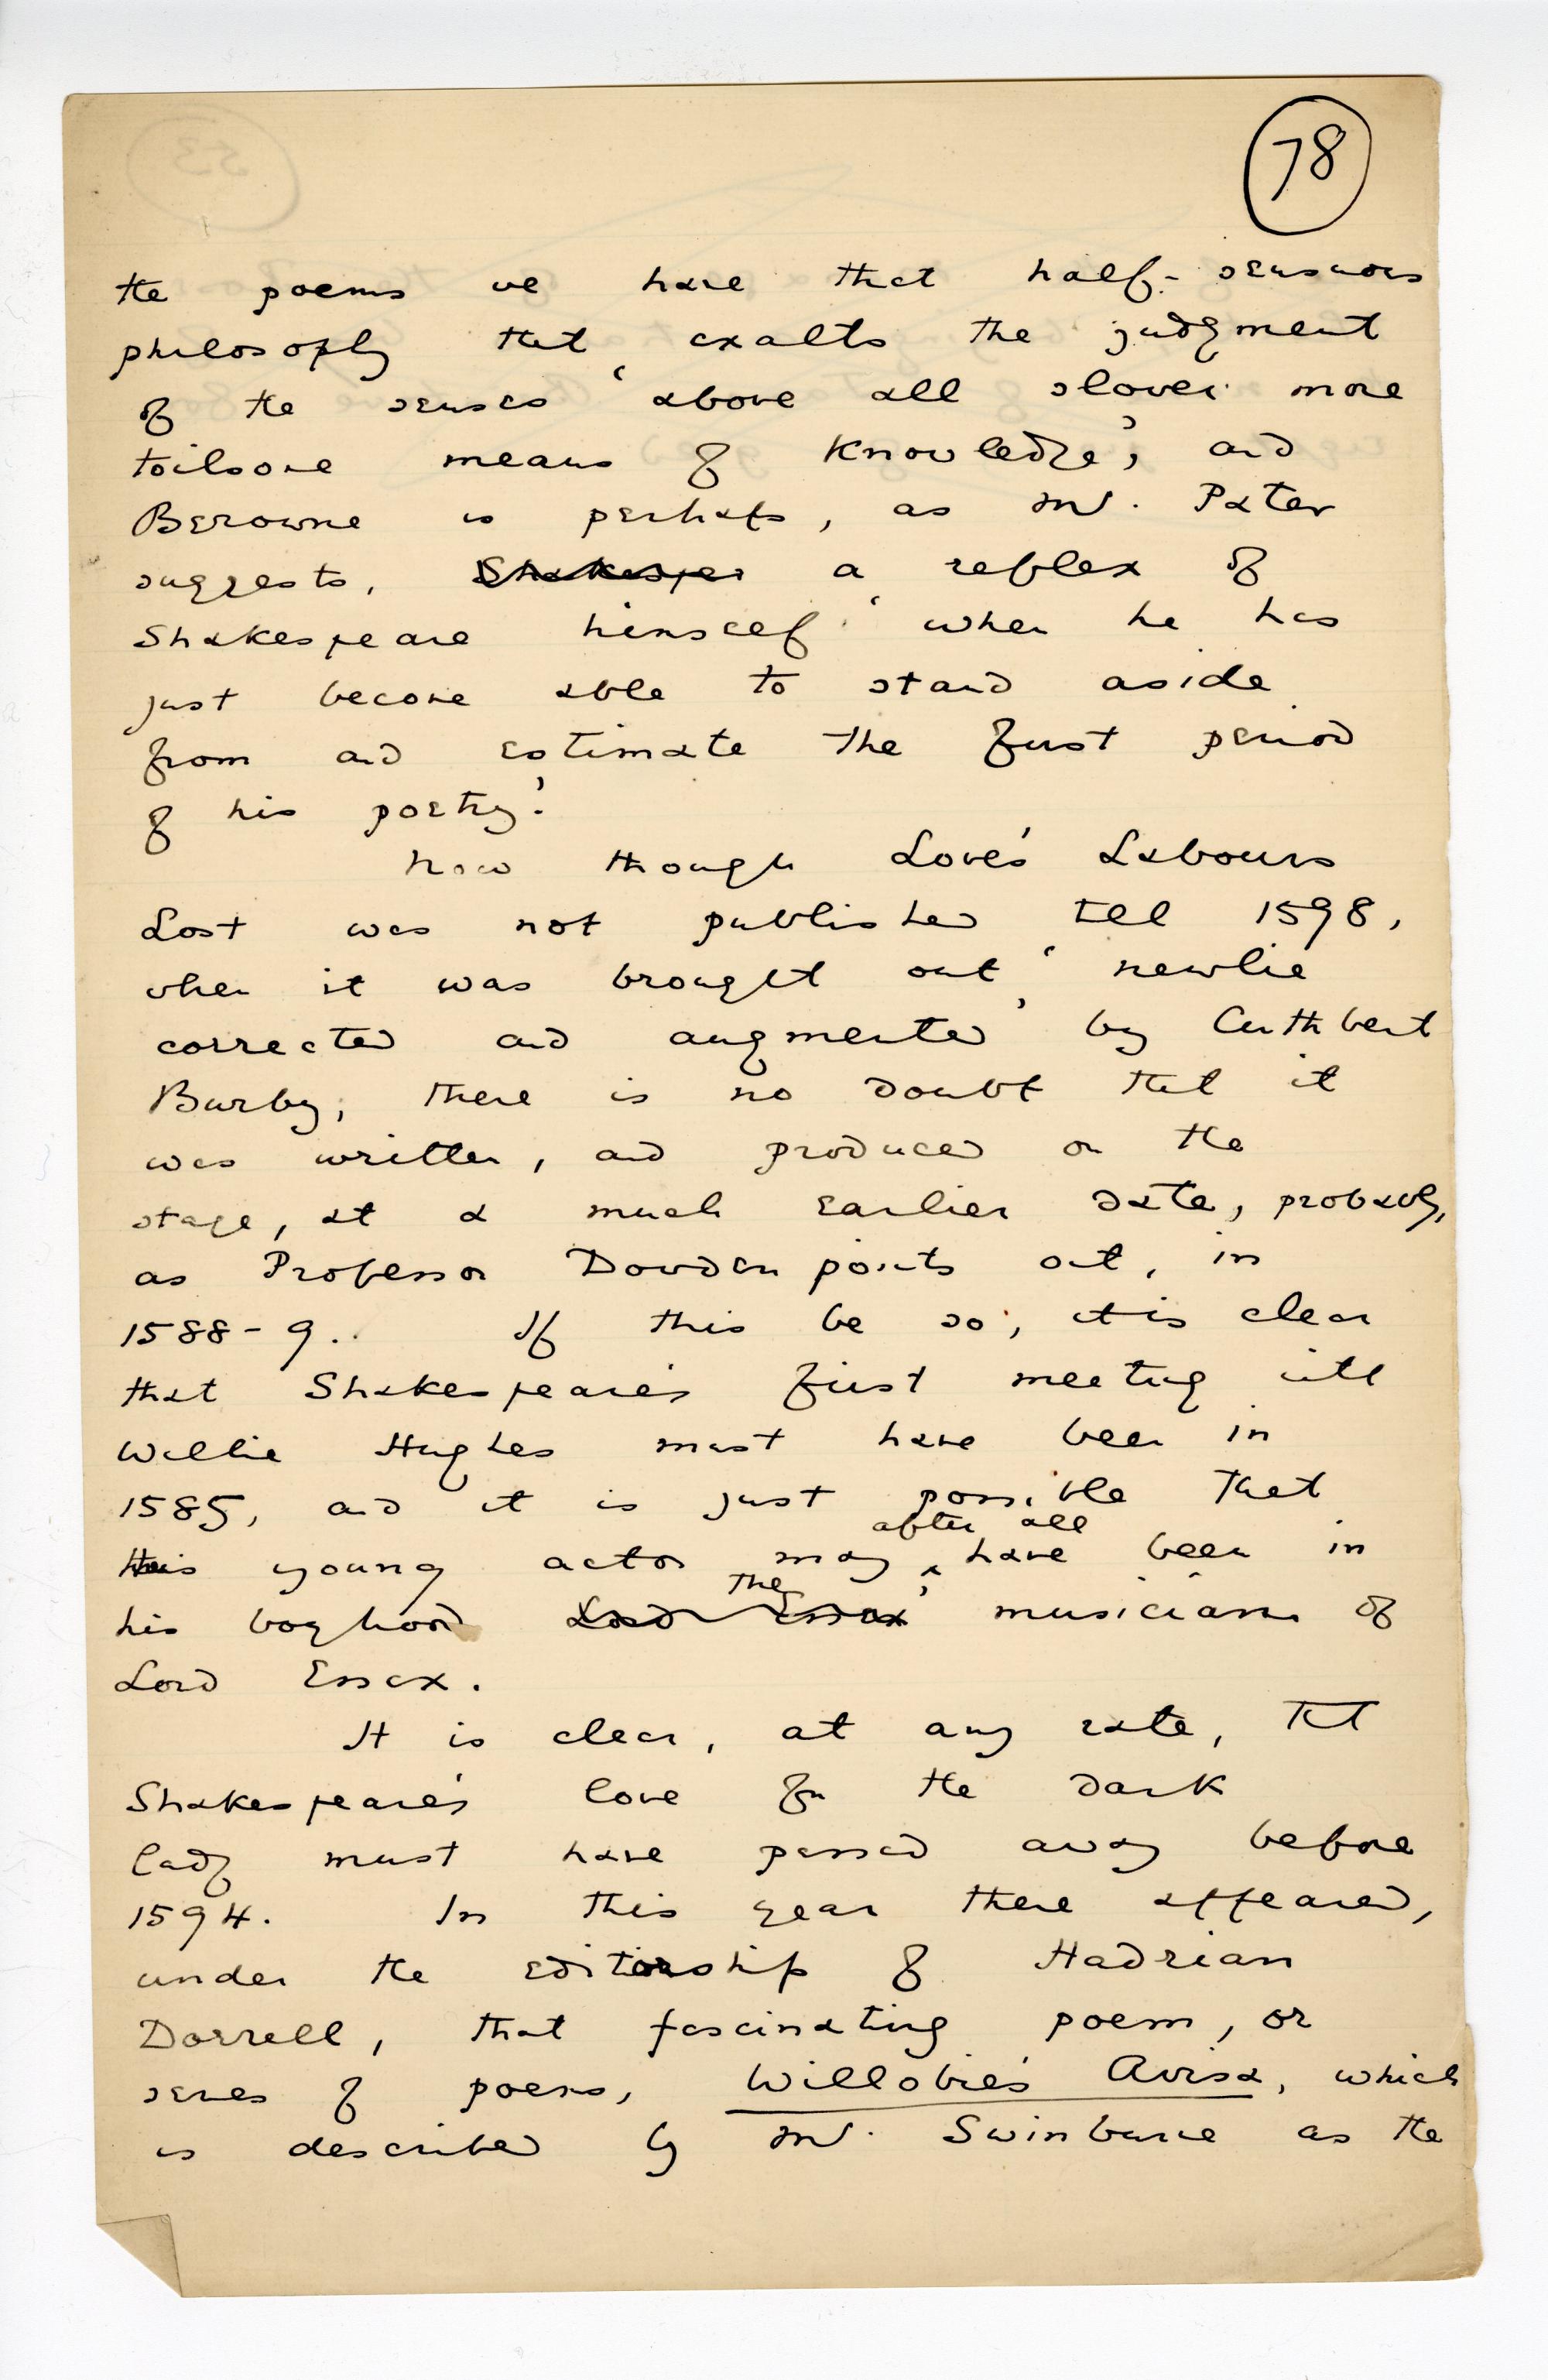 78
the poems we have that half-sensuous
philosophy that exalts the judgment
of the senses 'above all slower more
toilsome means of knowledge', and
Berowne is perhaps, as Mr. Pater
suggests, Shakesper a reflex of
Shakespeare himself 'when he has
just become able to stand aside
from and estimate the first period
of his poetry.'
Now though Love's Labours
Lost was not published till 1598,
when it was brought out 'newlie
corrected and augmented' by Cuthbert
Burby, there is no doubt that it
was written, and produced on the
stage, at a much earlier date, probably,
as Professor Dowden points out, in
1588-9. If this be so, it is clear
that Shakespeare's first meeting with
Willie Hughes must have been in
1585, and it is just possible that
after all
this young actor may ‸ have been in
the
his boyhood Lord Essex' musician of
Lord Essex.
It is clear, at any rate, that
Shakespeare's love for the dark
lady must have passed away before
1594. In this year there appeared,
under the editorship of Hadrian
Dorrell, that fascinating poem, or
series of poems, Willobie's Avisa, which
is described by Mr. Swinburne as the